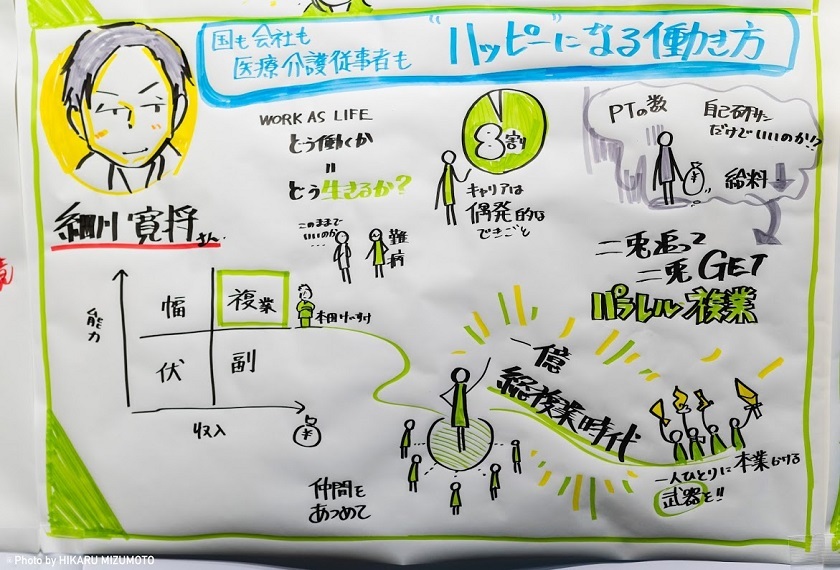 国も会社も
医療介護従事者も
"ハッピー"になる働き方
細川 寛将さん
WORK AS LIFE
どう働くか
=
どう生きるか?
このままで
いいのか…
難病
8割
キャリアは
偶発的な
できごと
PTの数
自己研鑽
だけでいいのか!?
給料
二兎追って
二兎GET
パラレル複業
能力
幅
複業
伏
副
収入
¥
本田けいすけ
一億
総複業時代
仲間を
あつめて
一人ひとりに本業における
武器を!!
Photo by HIKARU MIZUMOTO